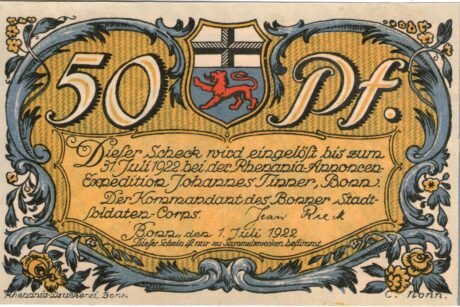 50 Pf.
Dieser Scheck wird eingelöst bis zum
31. Juli 1922 bei der Rhenania-Annoncen-
Expedition Johannes Tinner, Bonn.
Der Kommandant des Bonner Stadt-
soldaten-Corps. Jean Rieck
Bonn, den 1. Juli 1922
Dieser Schein ist nur zu Sammelzwecken bestimmt.
Rhenania-Druckerei, Bonn
C. Nonn.